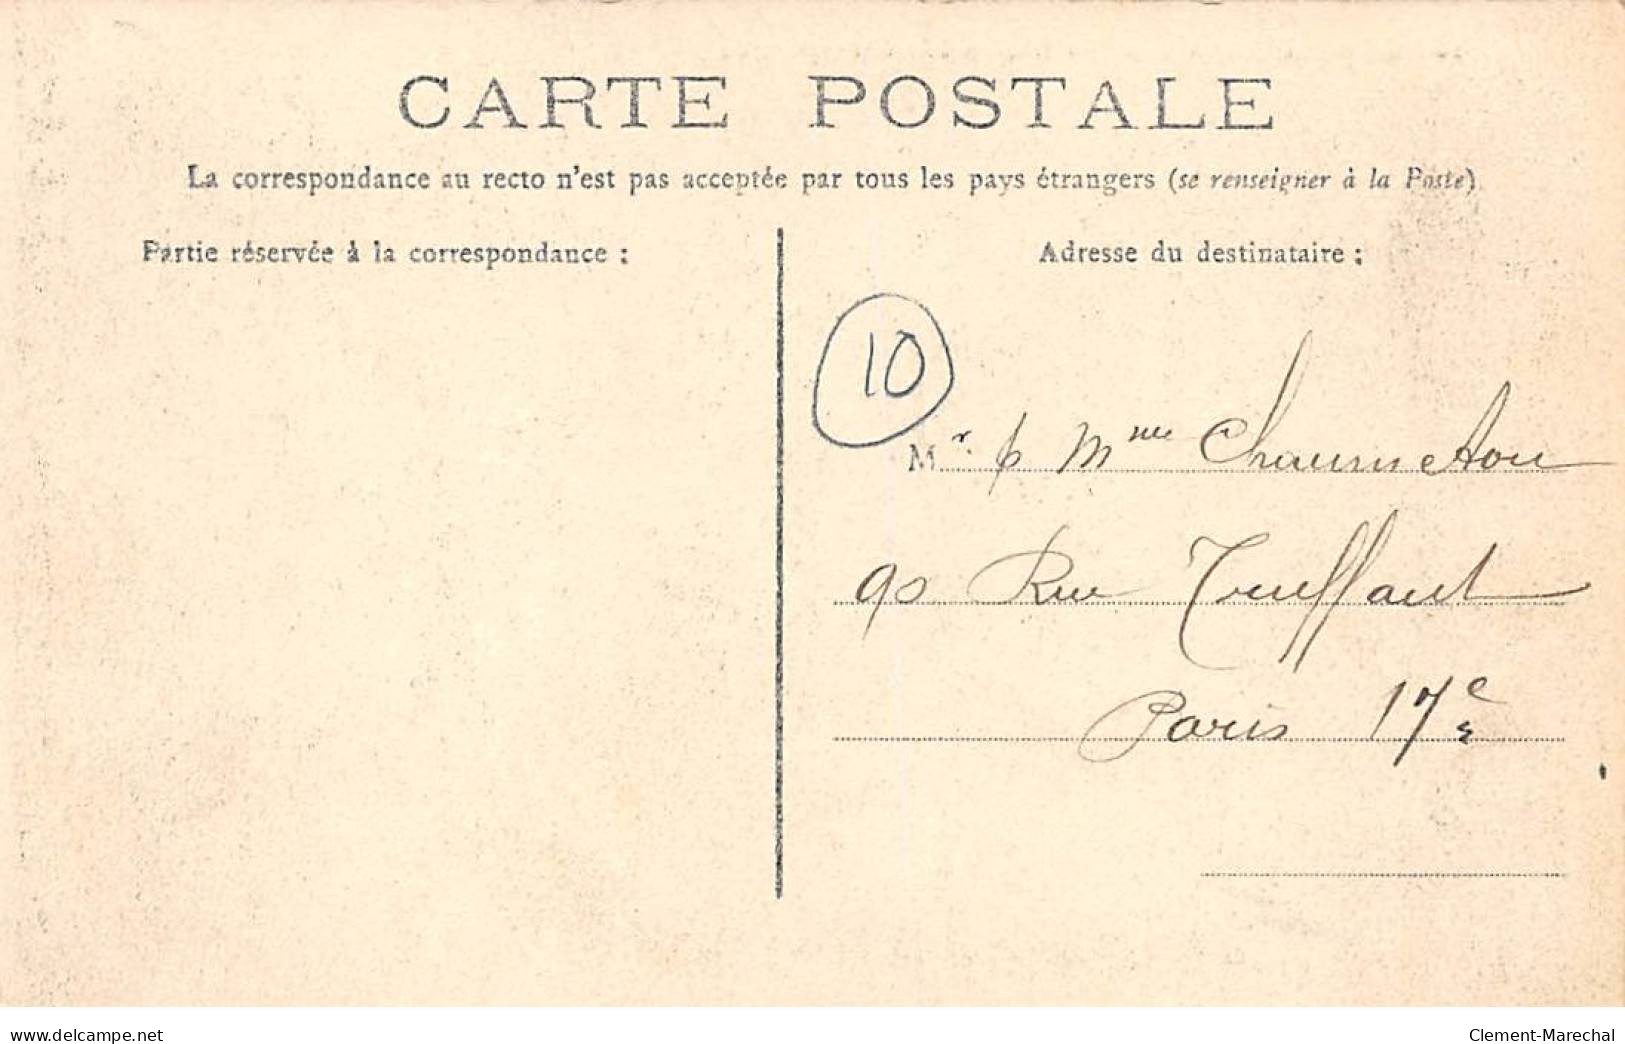 CARTE POSTALE
La correspondance au recto n'est pas acceptée par tous les pays étrangers (se renseigner à la Poste)
Partie réservée à la correspondance :
Adresse du destinataire :
10
Mr. & Mme Chaumeton
90 Rue Truffaut
Paris 17e
www.delcampe.net
Clement-Marechal